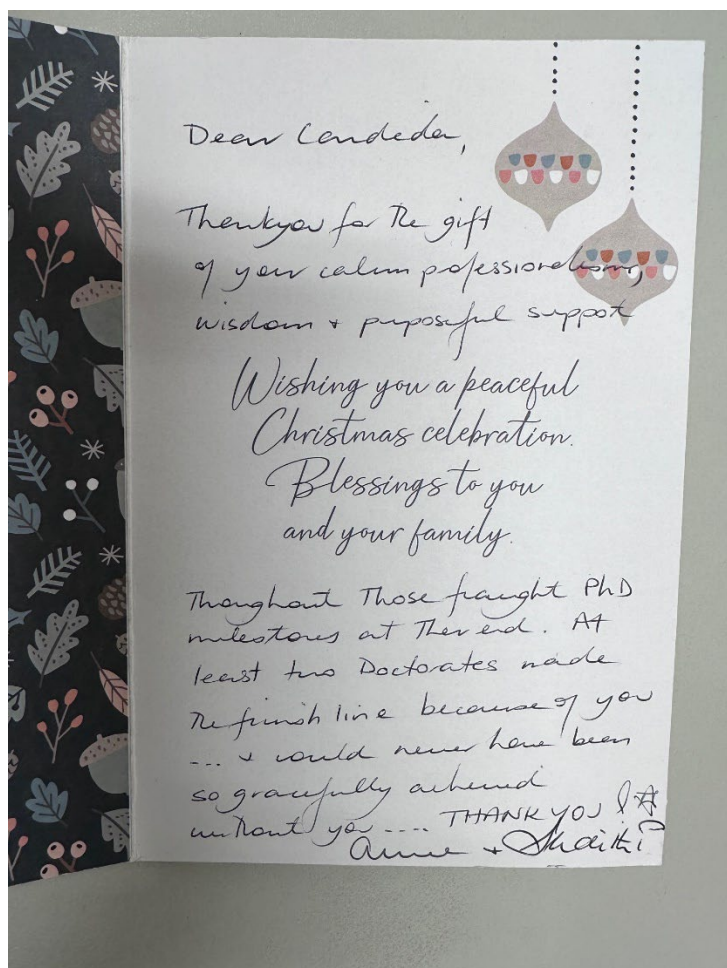 Dear Candida,
Thankyou for the gift
of your calm professionalism,
wisdom + purposeful support
Wishing you a peaceful
Christmas celebration.
Blessings to you
and your family.
Throughout Those fraught PhD
milestones at The end. At
least two Doctorates made
The finish line because of you
... + would never have been
so gracefully achieved
without you .... THANK YOU!
Anne +